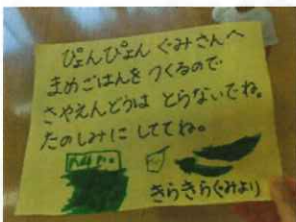 ぴょんぴょん ぐみさんへ
まめごはんを つくるので
さやえんどうは とらないでね。
たのしみに しててね。
きらきらぐみより